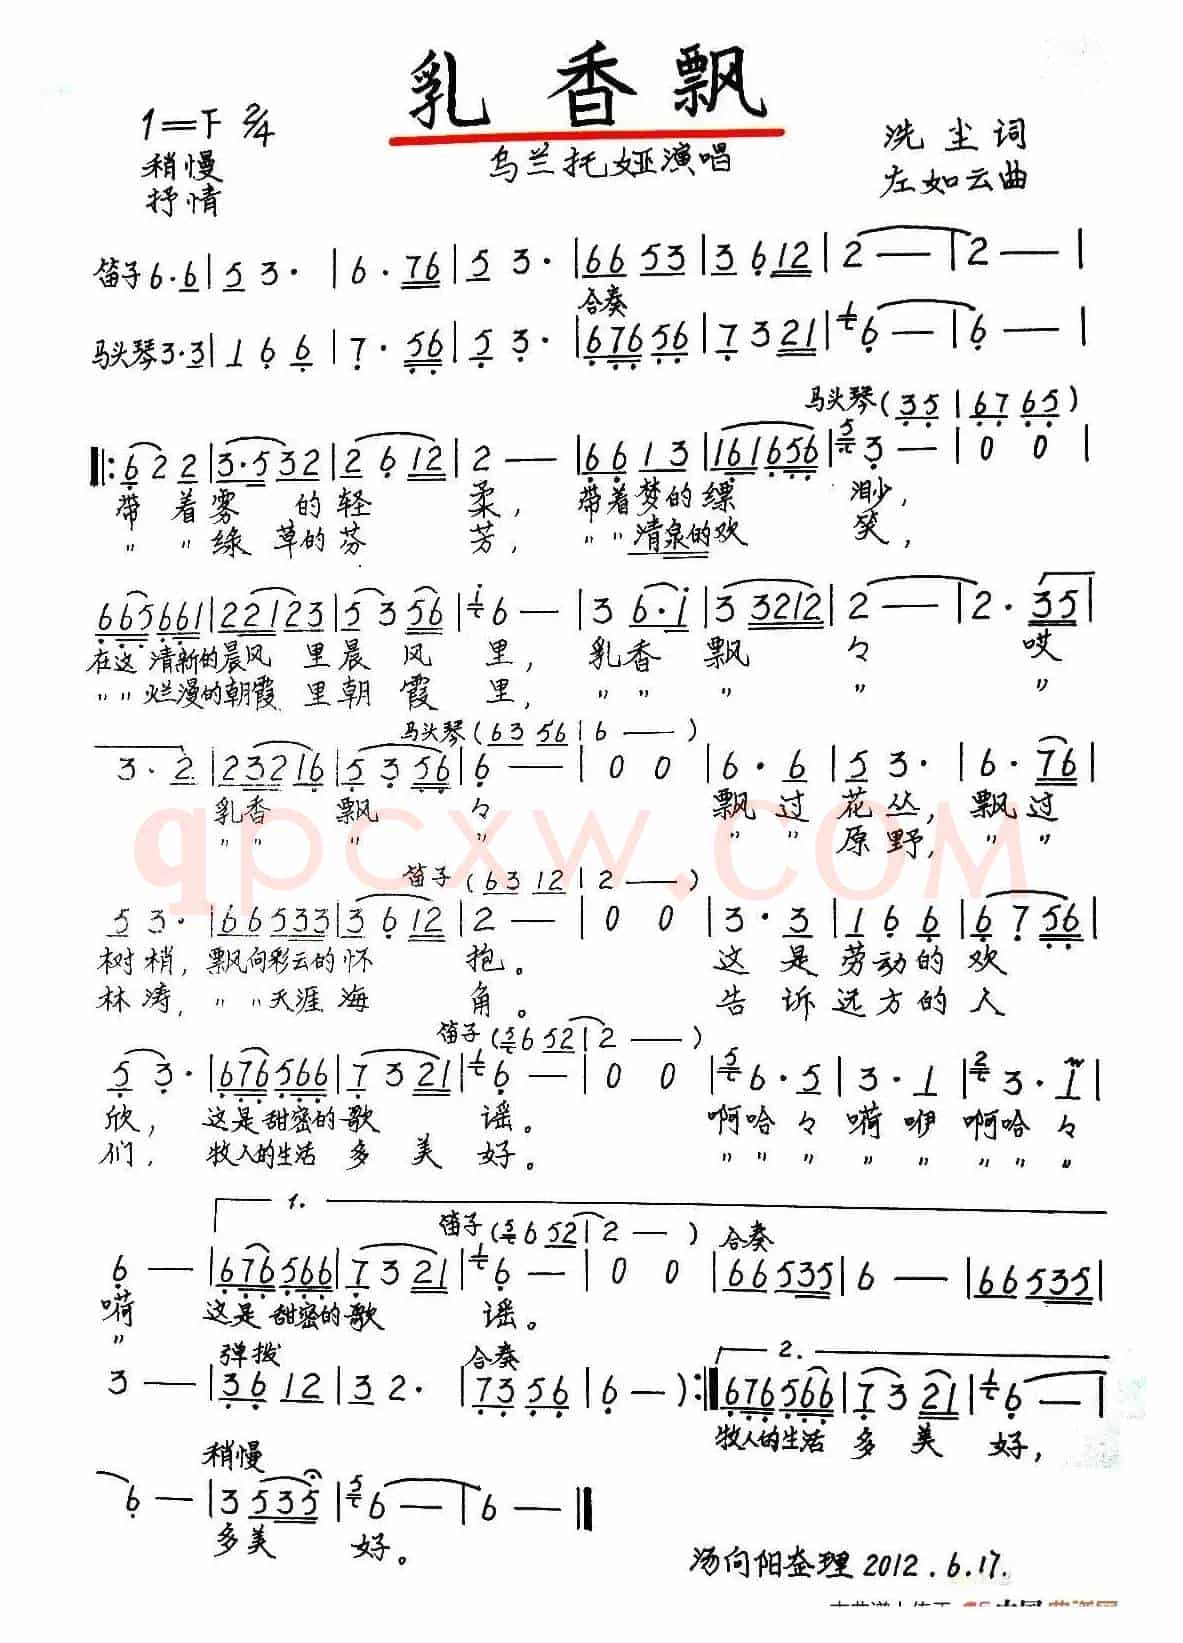 乳香飘
1=F 2/4
稍慢
抒情
乌兰托娅演唱
洗尘词
左如云曲
笛子 6·6 | 5 3· | 6·76 | 5 3· | 66 53 | 3 6 12 | 2 — | 2 — |
合奏
马头琴 3·3 | 1 6 6 | 7·56 | 5 3· | 6765 6 | 7 3 21 | 6 — | 6 — |
马头琴 (35 | 67 65)
‖: 6 2 2 | 3·532 | 2 6 12 | 2 — | 6 6 1 3 | 161656 | 3 — | 0 0 |
带着雾的轻柔，带着梦的缥渺，
〃〃绿草的芬芳，〃〃清泉的欢笑，
665661 | 22123 | 5 3 56 | 6 — | 3 6·i | 3 3212 | 2 — | 2·35 |
在这清新的晨风里晨风里，乳香飘々哎
〃〃烂漫的朝霞里朝霞里，〃〃〃〃〃
马头琴 (63 56 | 6 —)
3·2 | 23216 | 5 3 56 | 6 — | 0 0 | 6·6 | 5 3· | 6·76 |
乳香飘々飘过花丛，飘过
〃〃〃〃〃〃原野，〃〃
笛子 (63 12 | 2 —)
5 3· | 66533 | 3 6 12 | 2 — | 0 0 | 3·3 | 1 6 6 | 6 7 56 |
树梢，飘向彩云的怀抱。这是劳动的欢
林涛，〃〃天涯海角。告诉远方的人
笛子 (6 52 | 2 —)
5 3· | 676566 | 7 3 21 | 6 — | 0 0 | 6·5 | 3·1 | 3·1 |
欣，这是甜蜜的歌谣。啊哈々嗬咿啊哈々
们，牧人的生活多美好。〃〃〃〃〃〃〃〃
1.
笛子 (6 52 | 2 —) 合奏
6 — | 676566 | 7 3 21 | 6 — | 0 0 | 66535 | 6 — | 66535 |
嗬这是甜蜜的歌谣。
〃
弹拨 合奏 2.
3 — | 36 12 | 32· | 73 56 | 6 —) :‖ 676566 | 7 3 21 | 6 — |
牧人的生活多美好，
稍慢
6 — | 3 535 | 6 — | 6 — ‖
多美好。
汤向阳整理 2012.6.17.
qpcxw.com